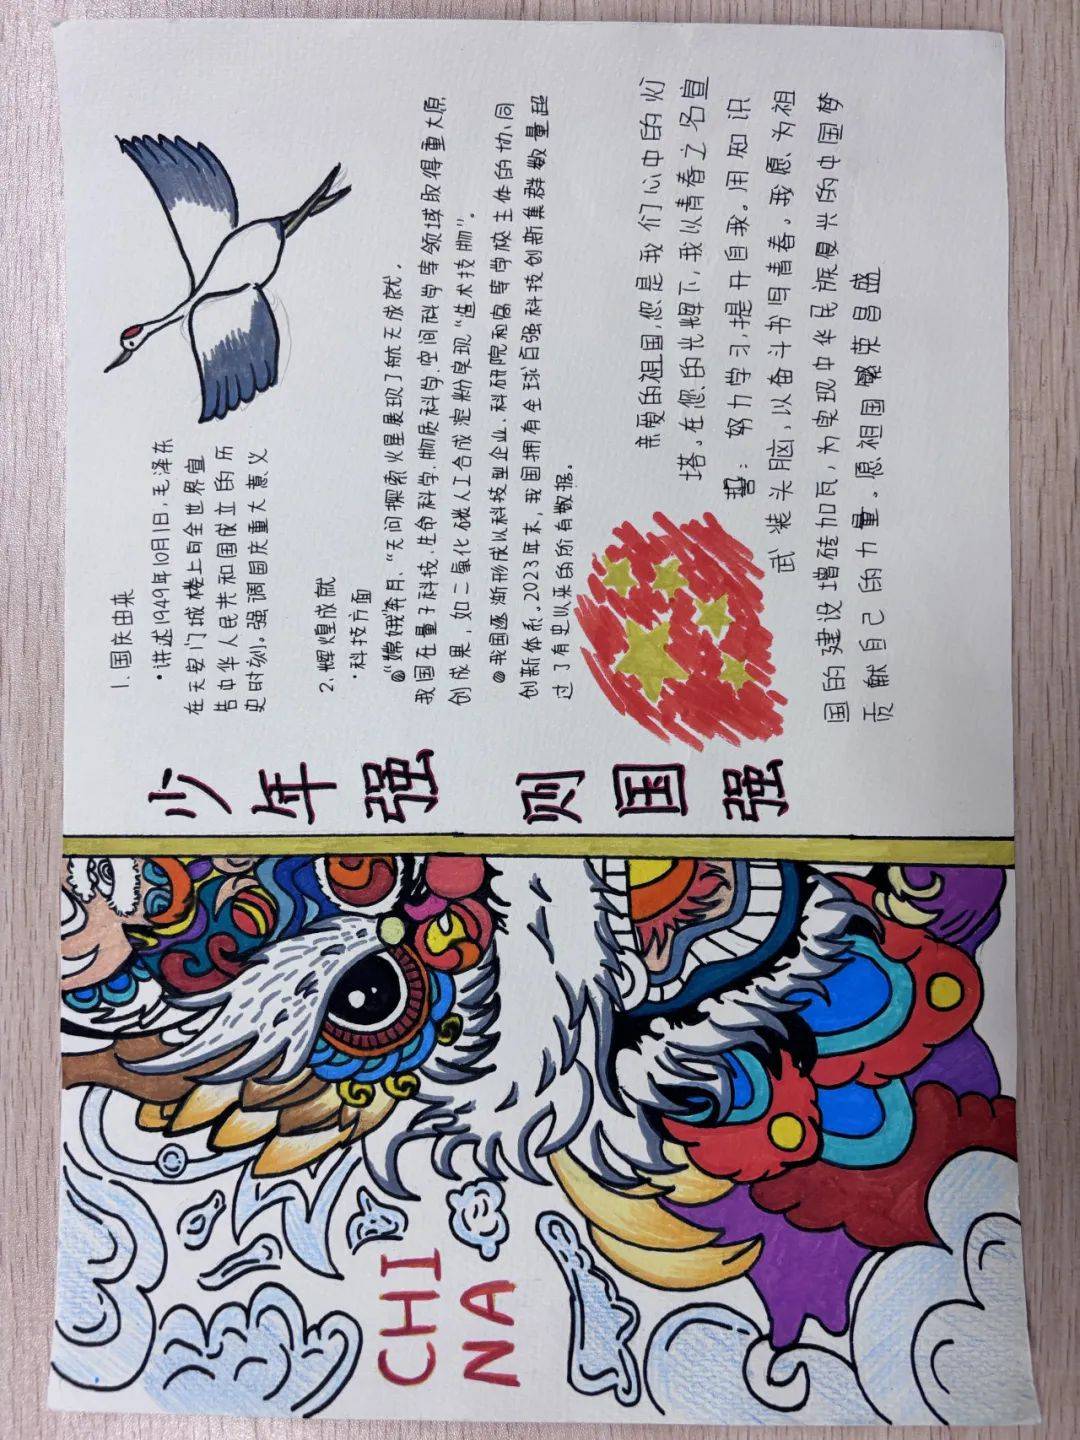 CHI
NA
少年强 则国强
1.国庆由来
·讲述1949年10月1日,毛泽东
在天安门城楼上向全世界宣
告中华人民共和国成立的历
史时刻。强调国庆重大意义
2.辉煌成就
·科技方面
“嫦娥”奔月、“天问”探索火星展现了航天成就。
我国在量子科技、生命科学、物质科学、空间科学等领域取得重大原
创成果,如二氧化碳人工合成淀粉实现“造术技物”。
我国逐渐形成以科技型企业、科研院和高等学校主体的协同
创新体系。2023年末,我国拥有全球百强科技创新集群数量超
过了有史以来的所有数据。
亲爱的祖国,您是我们心中的灯
塔。在您的光辉下,我以青春之名宣
誓:努力学习,提升自我。用知识
武装头脑,以奋斗书写青春。我愿为祖
国的建设增砖加瓦,为实现中华民族复兴的中国梦
贡献自己的力量。愿祖国繁荣昌盛